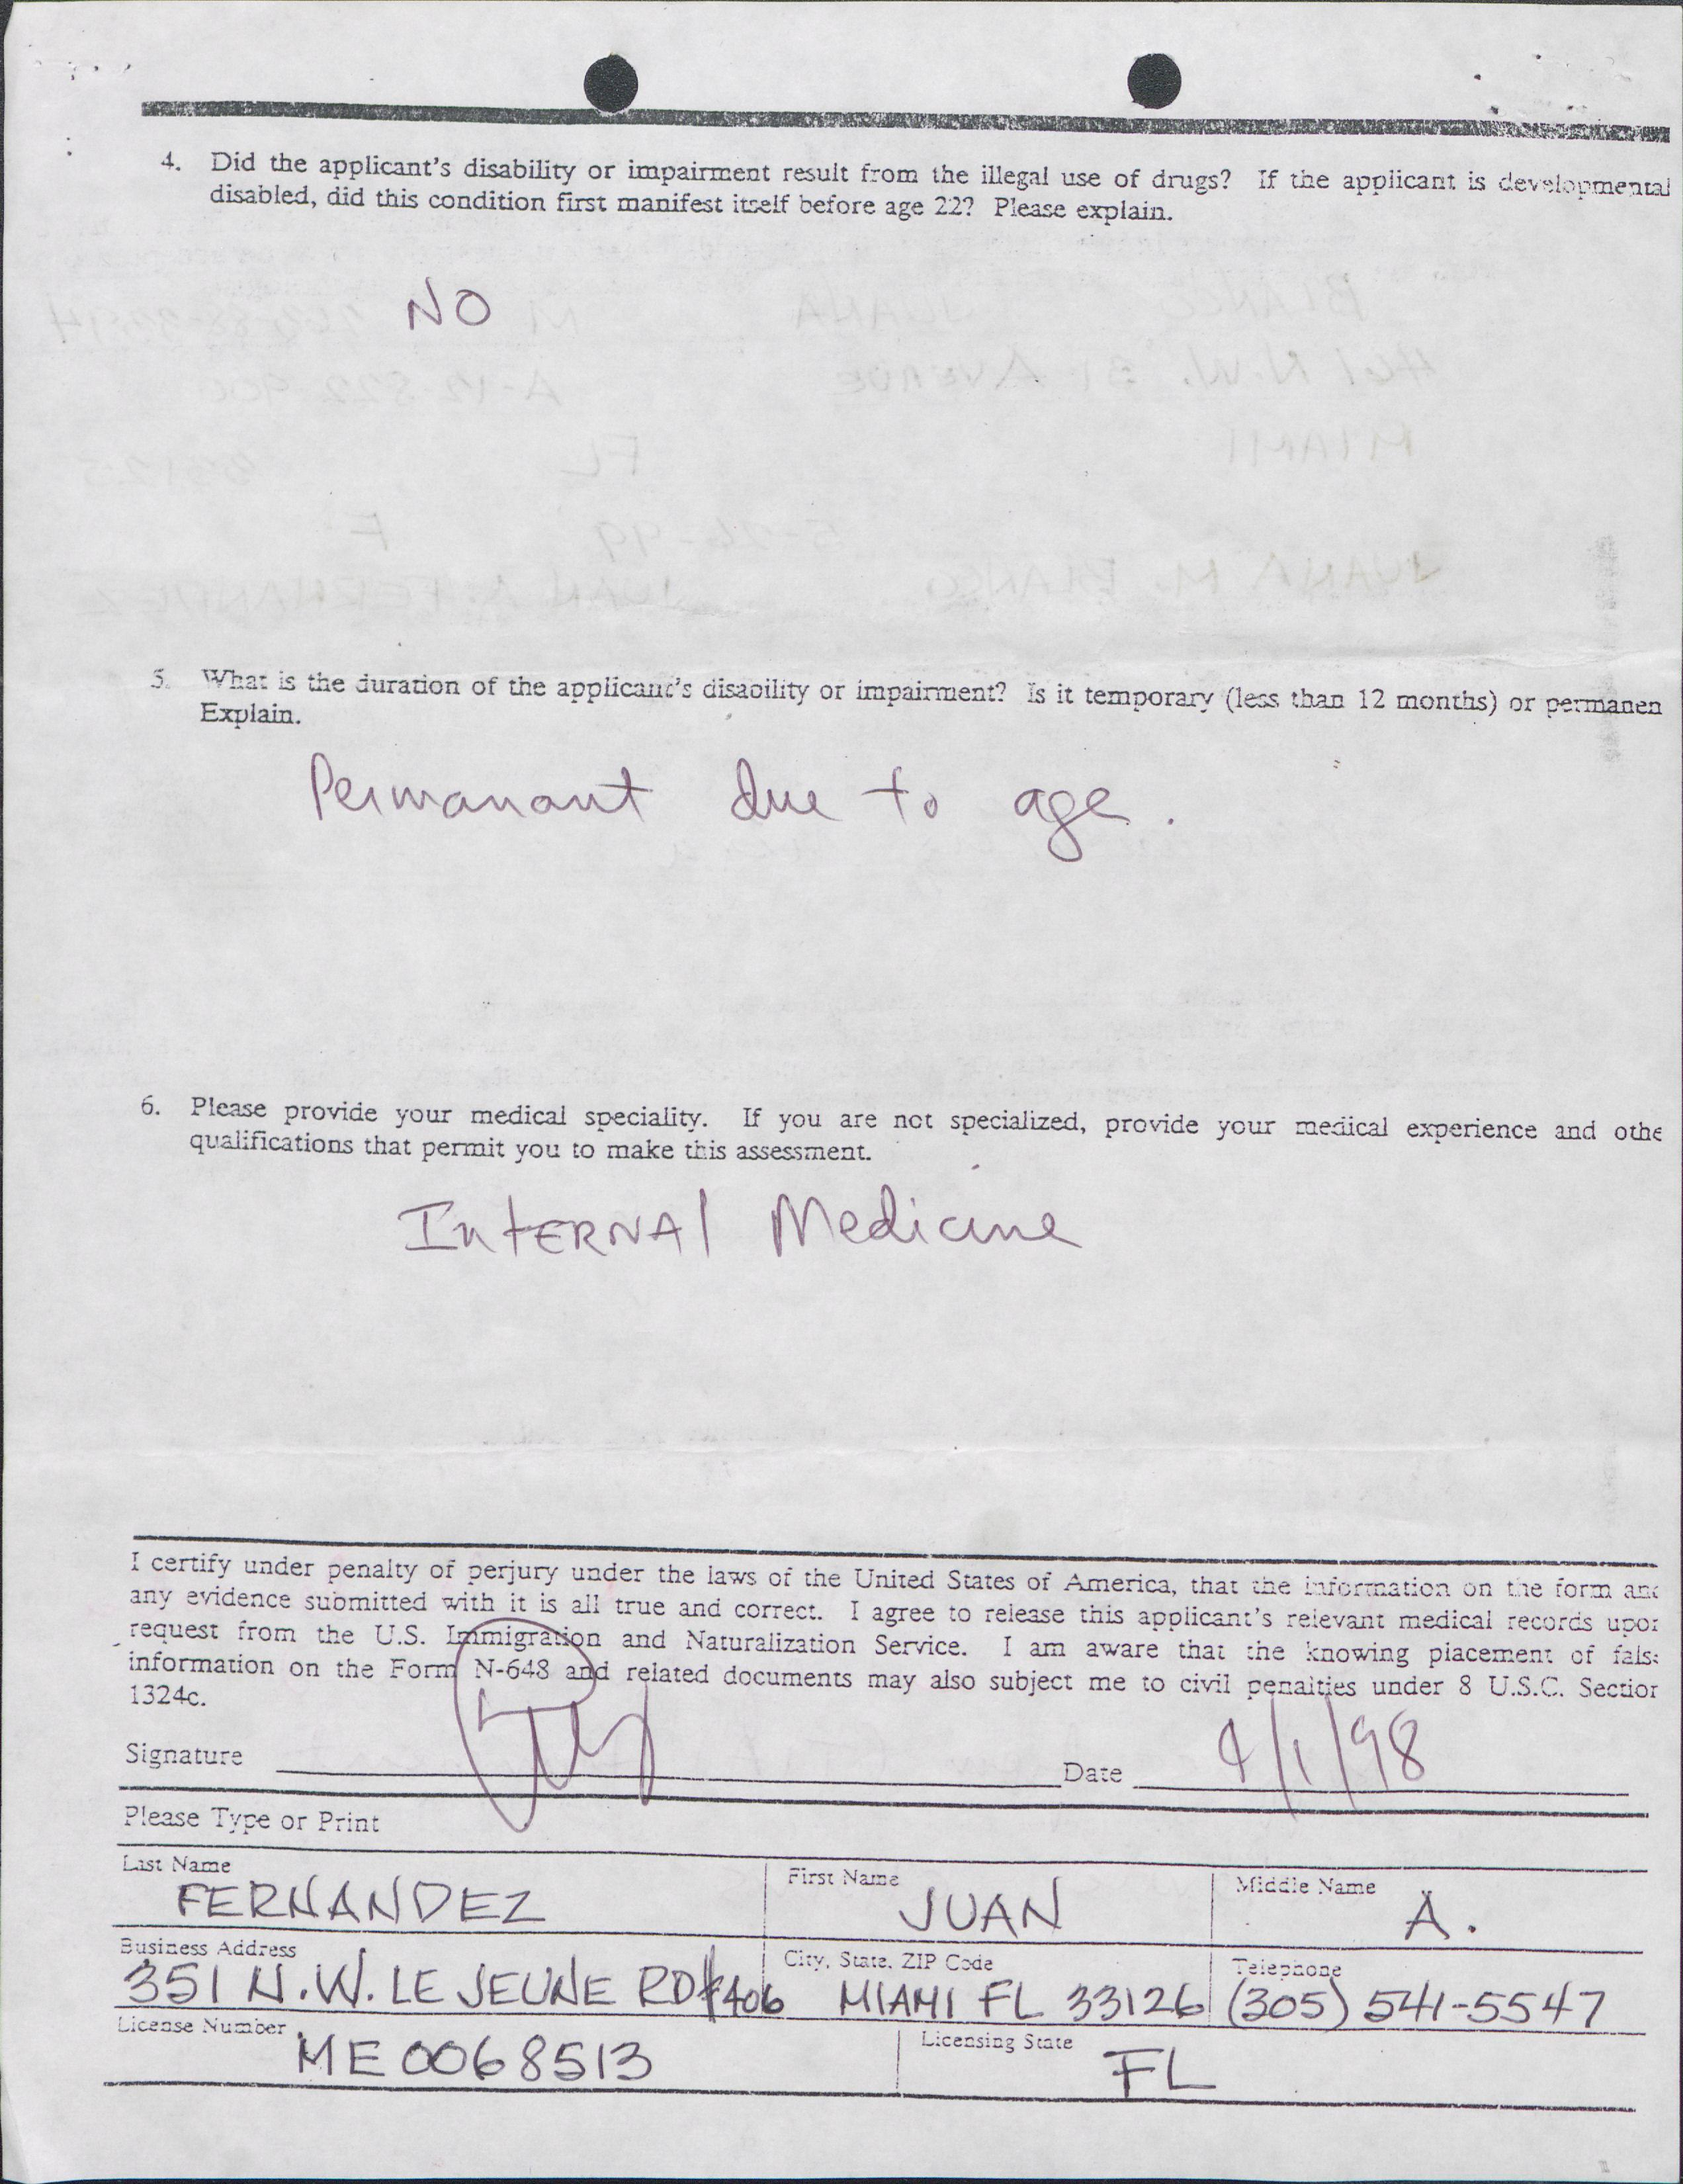 4. Did the applicant's disability or impairment result from the illegal use of drugs? If the applicant is developmental
disabled, did this condition first manifest itself before age 22? Please explain.
NO
5. What is the duration of the applicant's disability or impairment? Is it temporary (less than 12 months) or permanen
Explain.
Permanant due to age.
6. Please provide your medical speciality. If you are not specialized, provide your medical experience and othe
qualifications that permit you to make this assessment.
InTERNAl Medicine
I certify under penalty of perjury under the laws of the United States of America, that the information on the form and
any evidence submitted with it is all true and correct. I agree to release this applicant's relevant medical records upor
request from the U.S. Immigration and Naturalization Service. I am aware that the knowing placement of false
information on the Form N-648 and related documents may also subject me to civil penalties under 8 U.S.C. Section
1324c.
Signature Date 9/1/98
Please Type or Print
Last Name First Name Middle Name
FERNANDEZ JUAN A.
Business Address City, State, ZIP Code Telephone
351 N.W. LE JEUNE RD #406 MIAMI FL 33126 (305) 541-5547
License Number Licensing State
ME0068513 FL